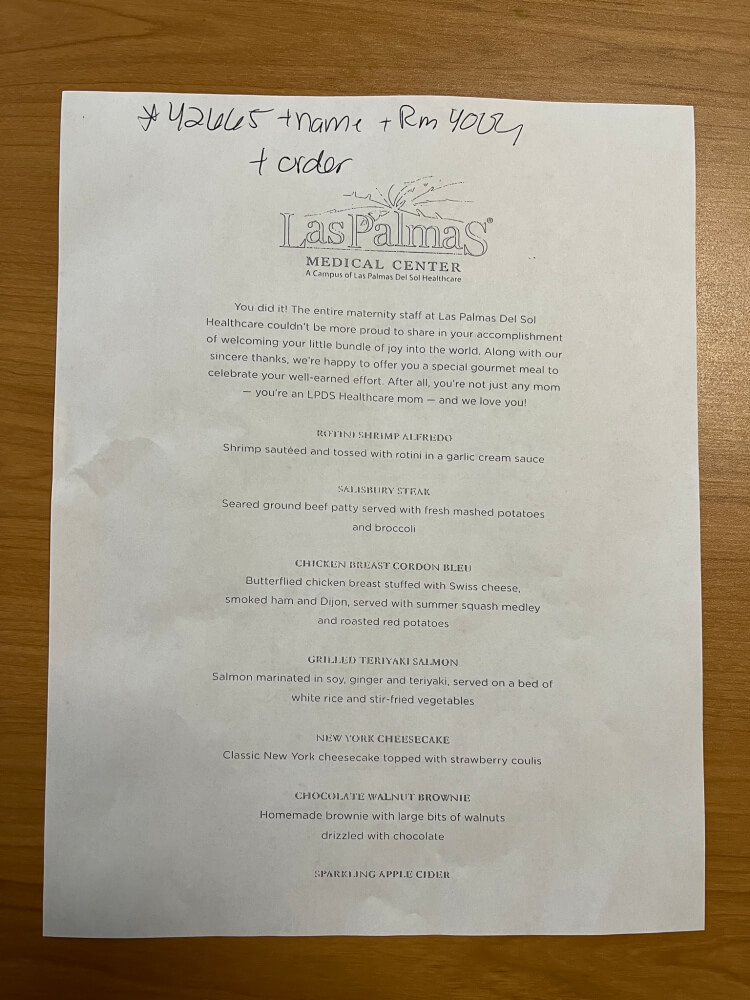 *42665 + name + Rm 4004
+ order
Las Palmas®
MEDICAL CENTER
A Campus of Las Palmas Del Sol Healthcare
You did it! The entire maternity staff at Las Palmas Del Sol
Healthcare couldn't be more proud to share in your accomplishment
of welcoming your little bundle of joy into the world. Along with our
sincere thanks, we're happy to offer you a special gourmet meal to
celebrate your well-earned effort. After all, you're not just any mom
— you're an LPDS Healthcare mom — and we love you!
ROTINI SHRIMP ALFREDO
Shrimp sautéed and tossed with rotini in a garlic cream sauce
SALISBURY STEAK
Seared ground beef patty served with fresh mashed potatoes
and broccoli
CHICKEN BREAST CORDON BLEU
Butterflied chicken breast stuffed with Swiss cheese,
smoked ham and Dijon, served with summer squash medley
and roasted red potatoes
GRILLED TERIYAKI SALMON
Salmon marinated in soy, ginger and teriyaki, served on a bed of
white rice and stir-fried vegetables
NEW YORK CHEESECAKE
Classic New York cheesecake topped with strawberry coulis
CHOCOLATE WALNUT BROWNIE
Homemade brownie with large bits of walnuts
drizzled with chocolate
SPARKLING APPLE CIDER